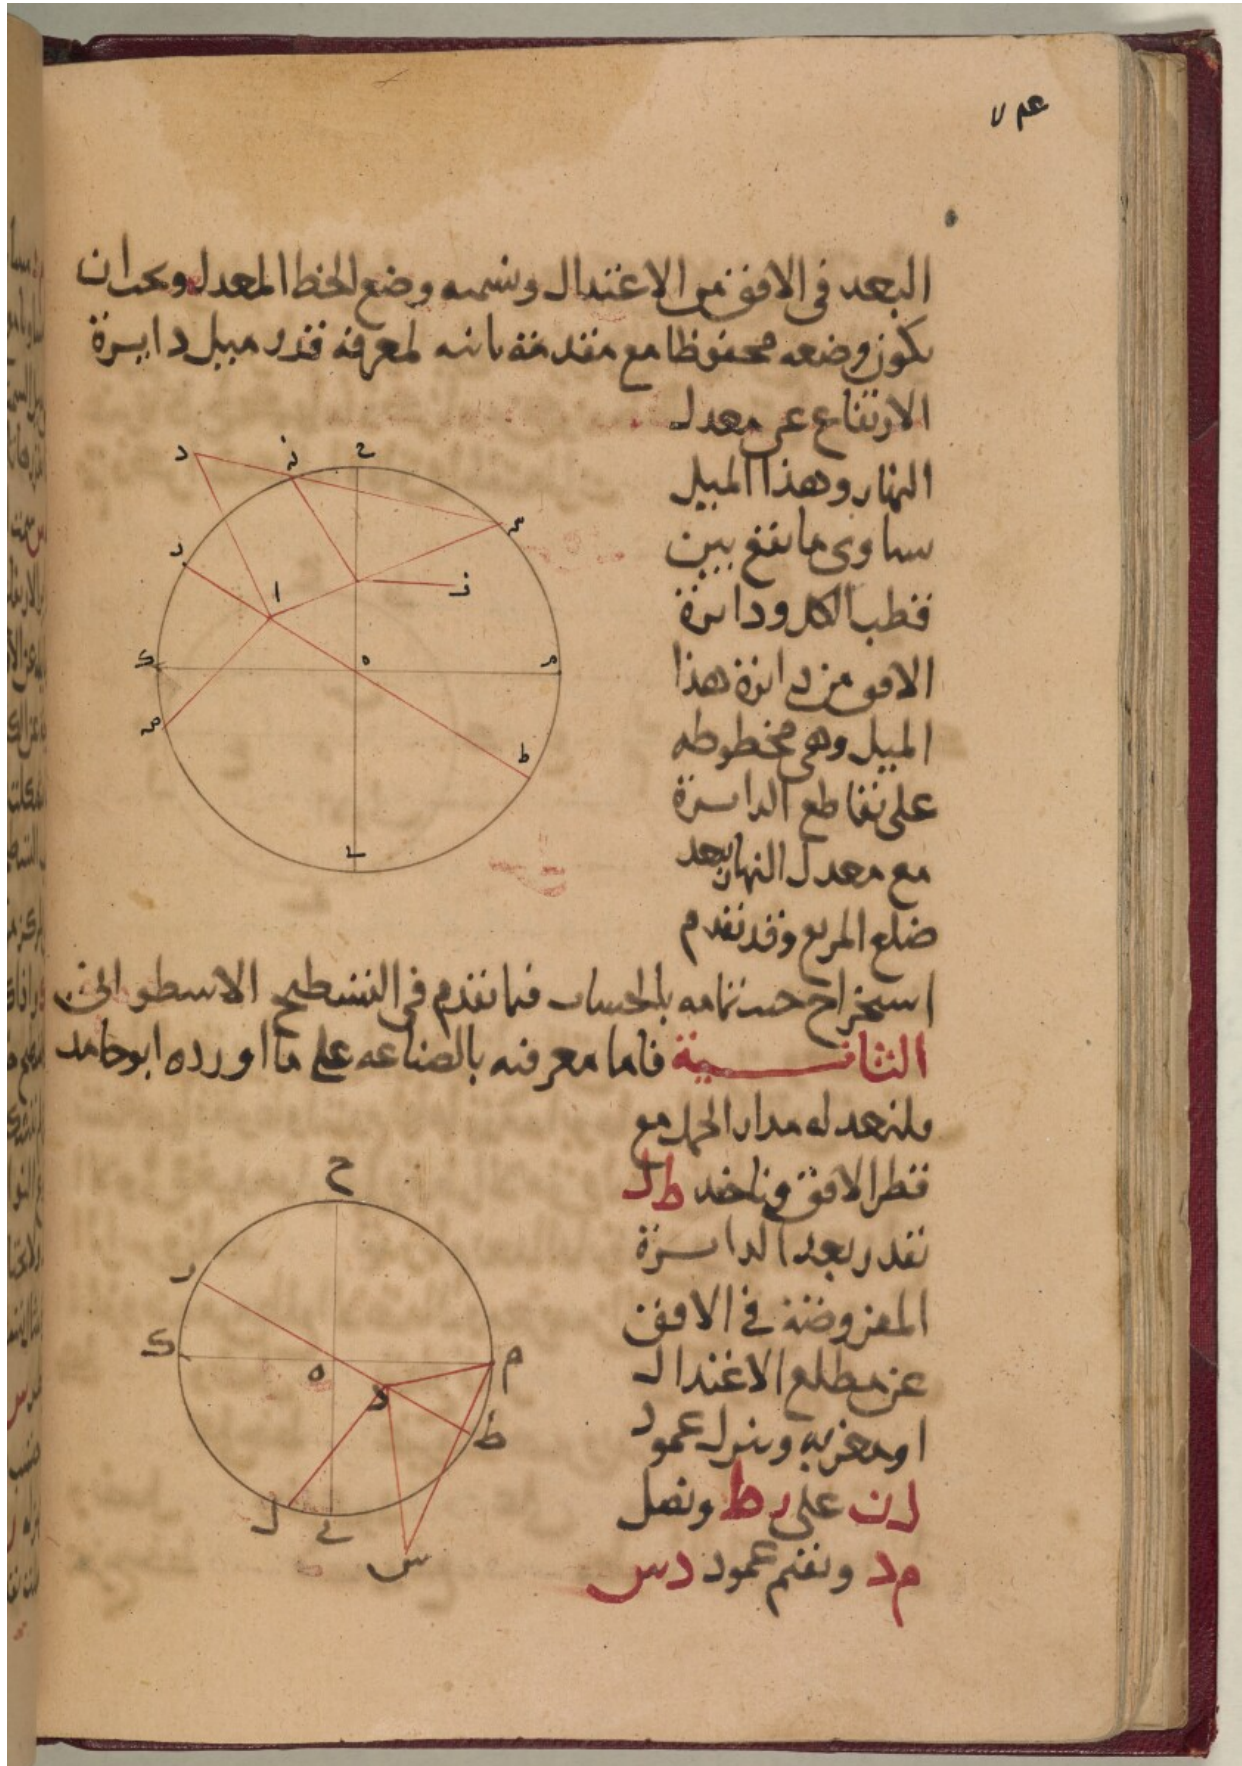 البعد في الافق من الاعتدال ونسميه وضع الخط المعدل ويجب ان
يكون وضعه محفوظا مع مقدمة ثانيه لمعرفة قدر ميل دايرة
الارتفاع عن معدل
النهار وهذا الميل
يساوي ما يقع بين
قطب الكل ودايرة
الافق من دايرة هذا
الميل وهي مخطوطه
على تقاطع الدايرة
مع معدل النهار ببعد
ضلع المربع وقد تقدم
استخراج تمامه بالحساب فيما تقدم في التسطيح الاسطواني
الثانيـة فاما معرفته بالصناعه على ما اورده ابو حامد
فلنعد له مدار الحمل مع
قطر الافق وناخذ ط ل
بقدر بعد الدايـرة
المفروضة في الافق
عن مطلع الاعتدال
او مغربه وننزل عمود
ل ن على ر ط ونصل
م د ونقيم عمود د س
ح
د
ن
م
ر
ا
ز
ك
ه
م
ص
ط
ل
ح
ر
ك
ه
م
د
ط
ل
ے
س